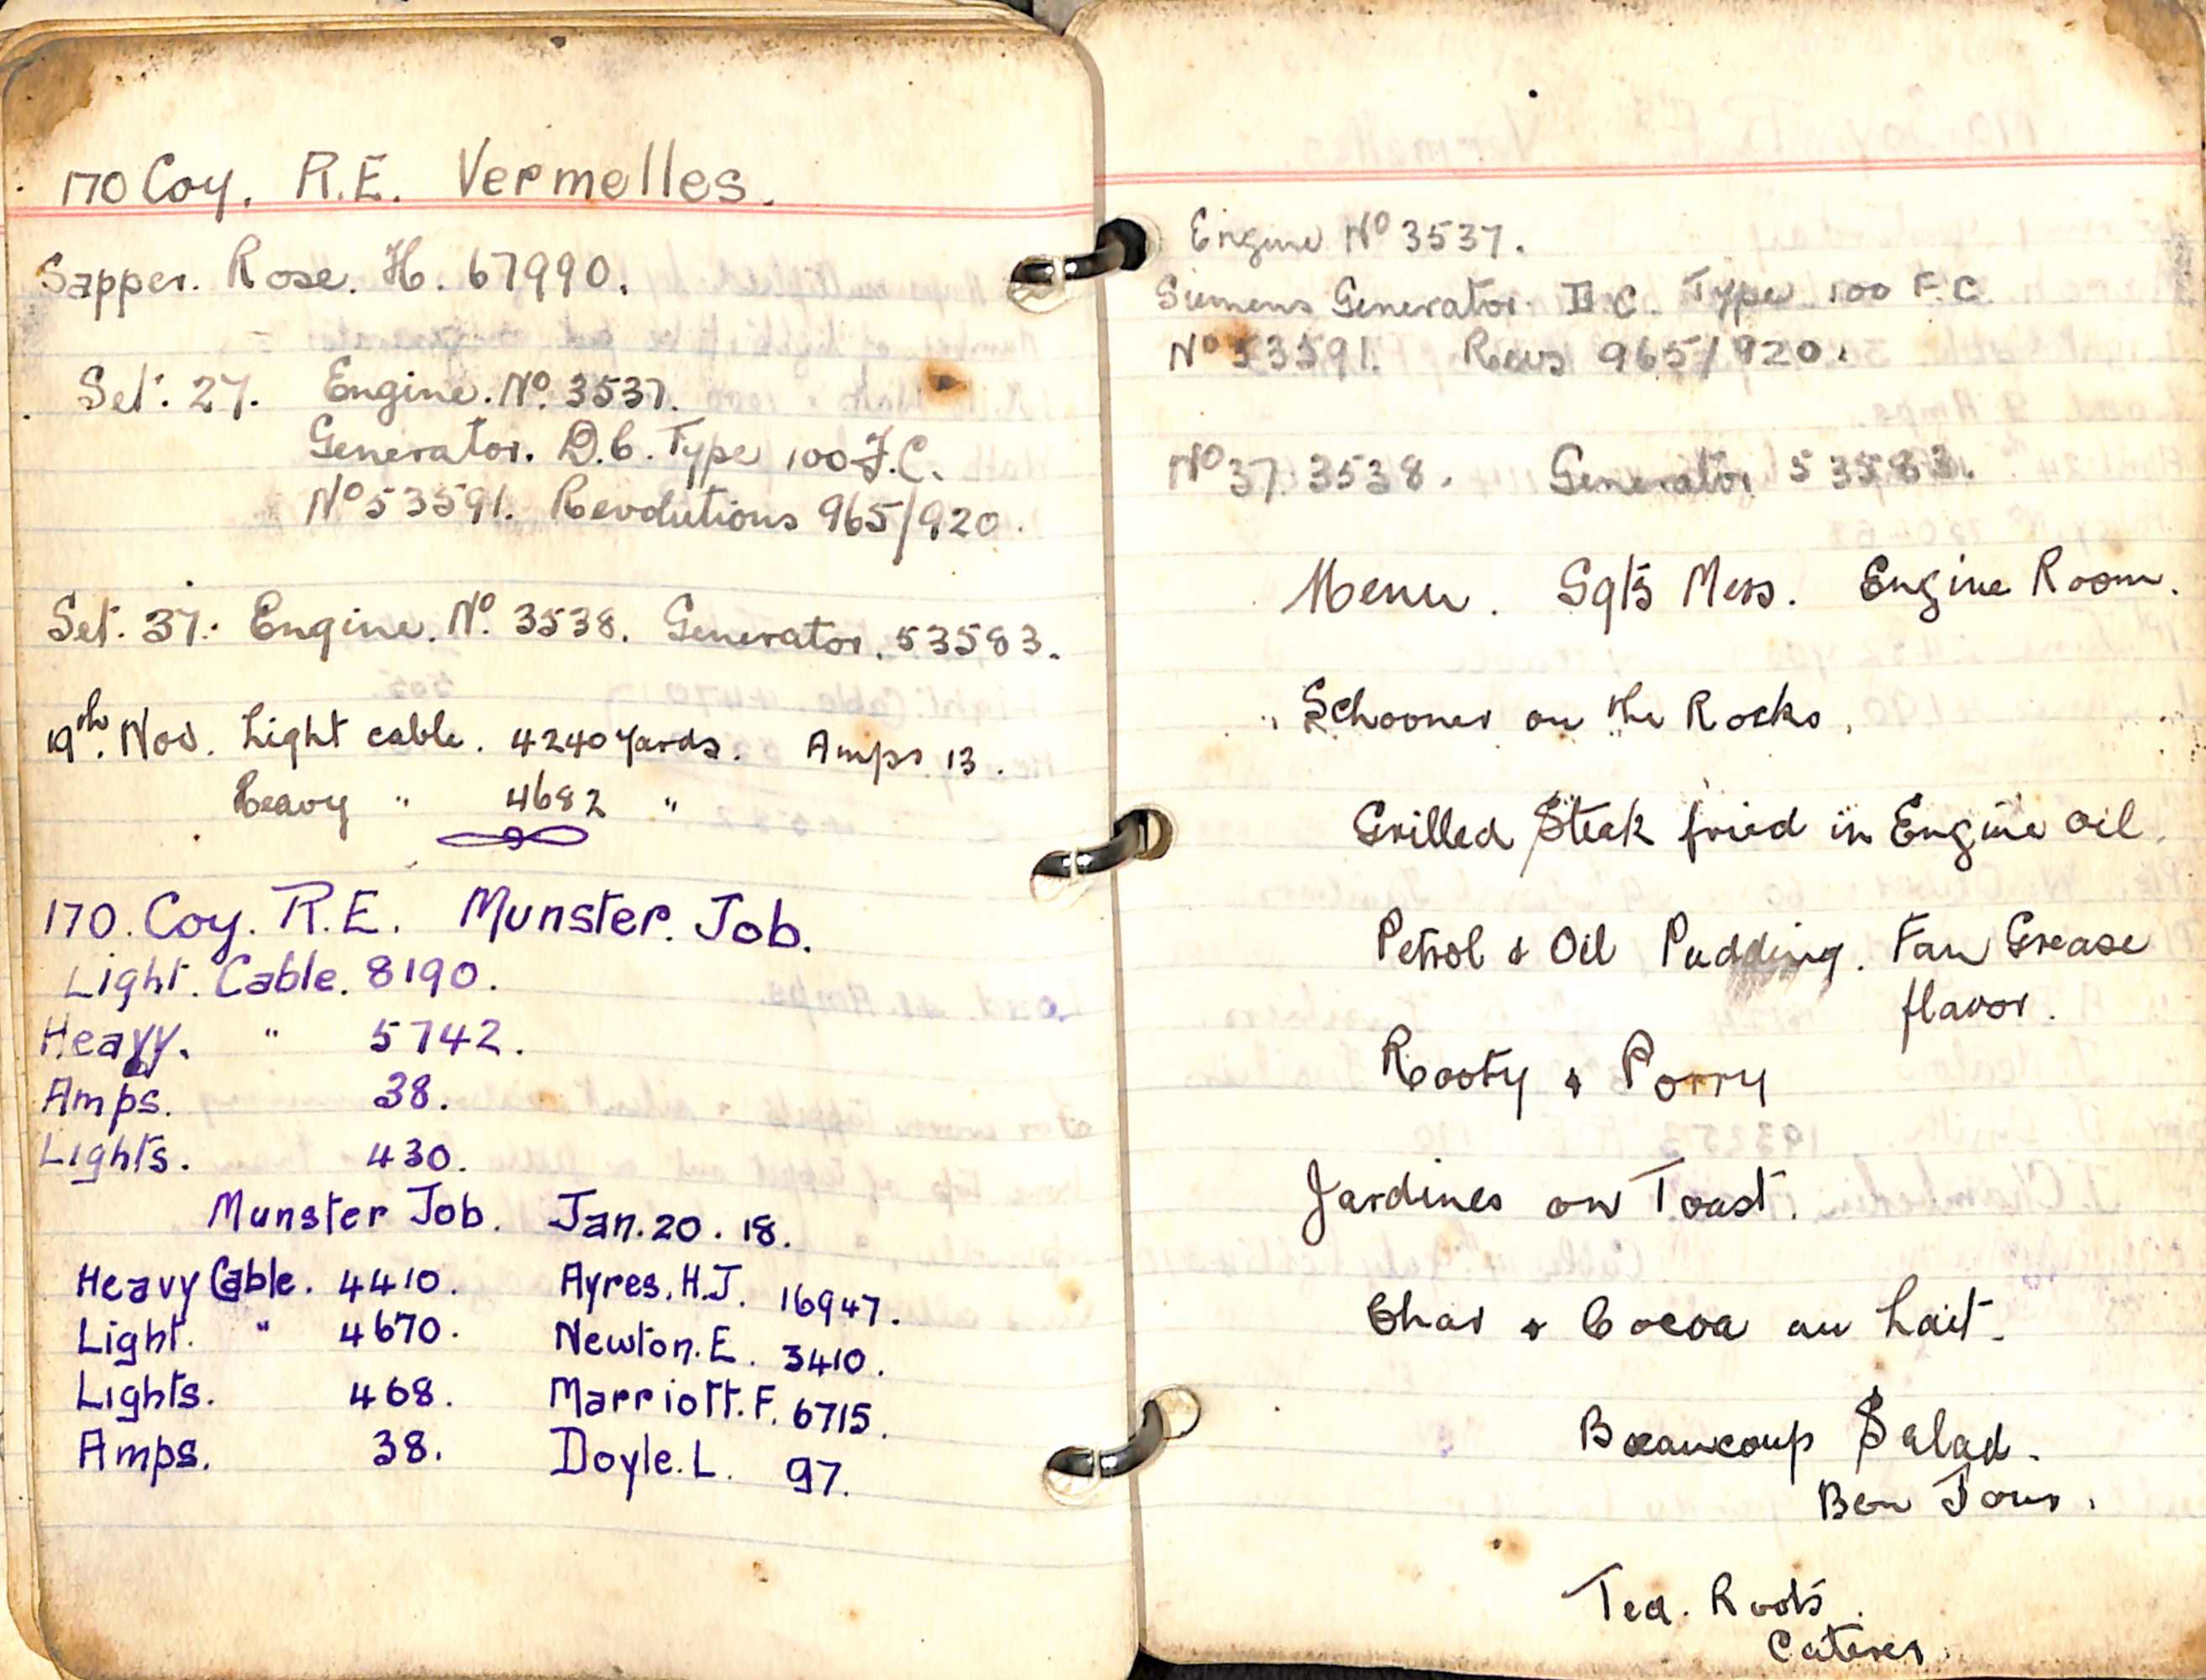 170 Coy. R.E. Vermelles.
Sapper. Rose. H. 67990.
Set. 27. Engine. No. 3537.
Generator. D.C. Type 100 F.C.
No 53591. Revolutions 965/920.
Set. 37. Engine. No. 3538. Generator. 53583.
19th. Nov. Light cable. 4240 Yards. Amps 13.
Heavy " 4682 "
170. Coy. R.E. Munster. Job.
Light. Cable. 8190.
Heavy. " 5742.
Amps. 38.
Lights. 430.
Munster Job. Jan. 20. 18.
Heavy Cable. 4410. Ayres. H.J. 16947.
Light. " 4670. Newton. E. 3410.
Lights. 468. Marriott. F. 6715.
Amps. 38. Doyle. L. 97.
Engine No 3537.
Siemens Generator. D.C. Type 100 F.C.
No 53591. Revs 965/920.
No 37. 3538. Generator 53583.
Menu. Sgts Mess. Engine Room.
Schooner on the Rocks.
Grilled Steak fried in Engine oil.
Petrol & Oil Pudding. Fan Grease
flavor.
Rooty & Porry
Jardines on Toast.
Char & Cocoa au Lait.
Beaucoup Salad.
Bon Jour.
Ted. Roots.
Caterer.